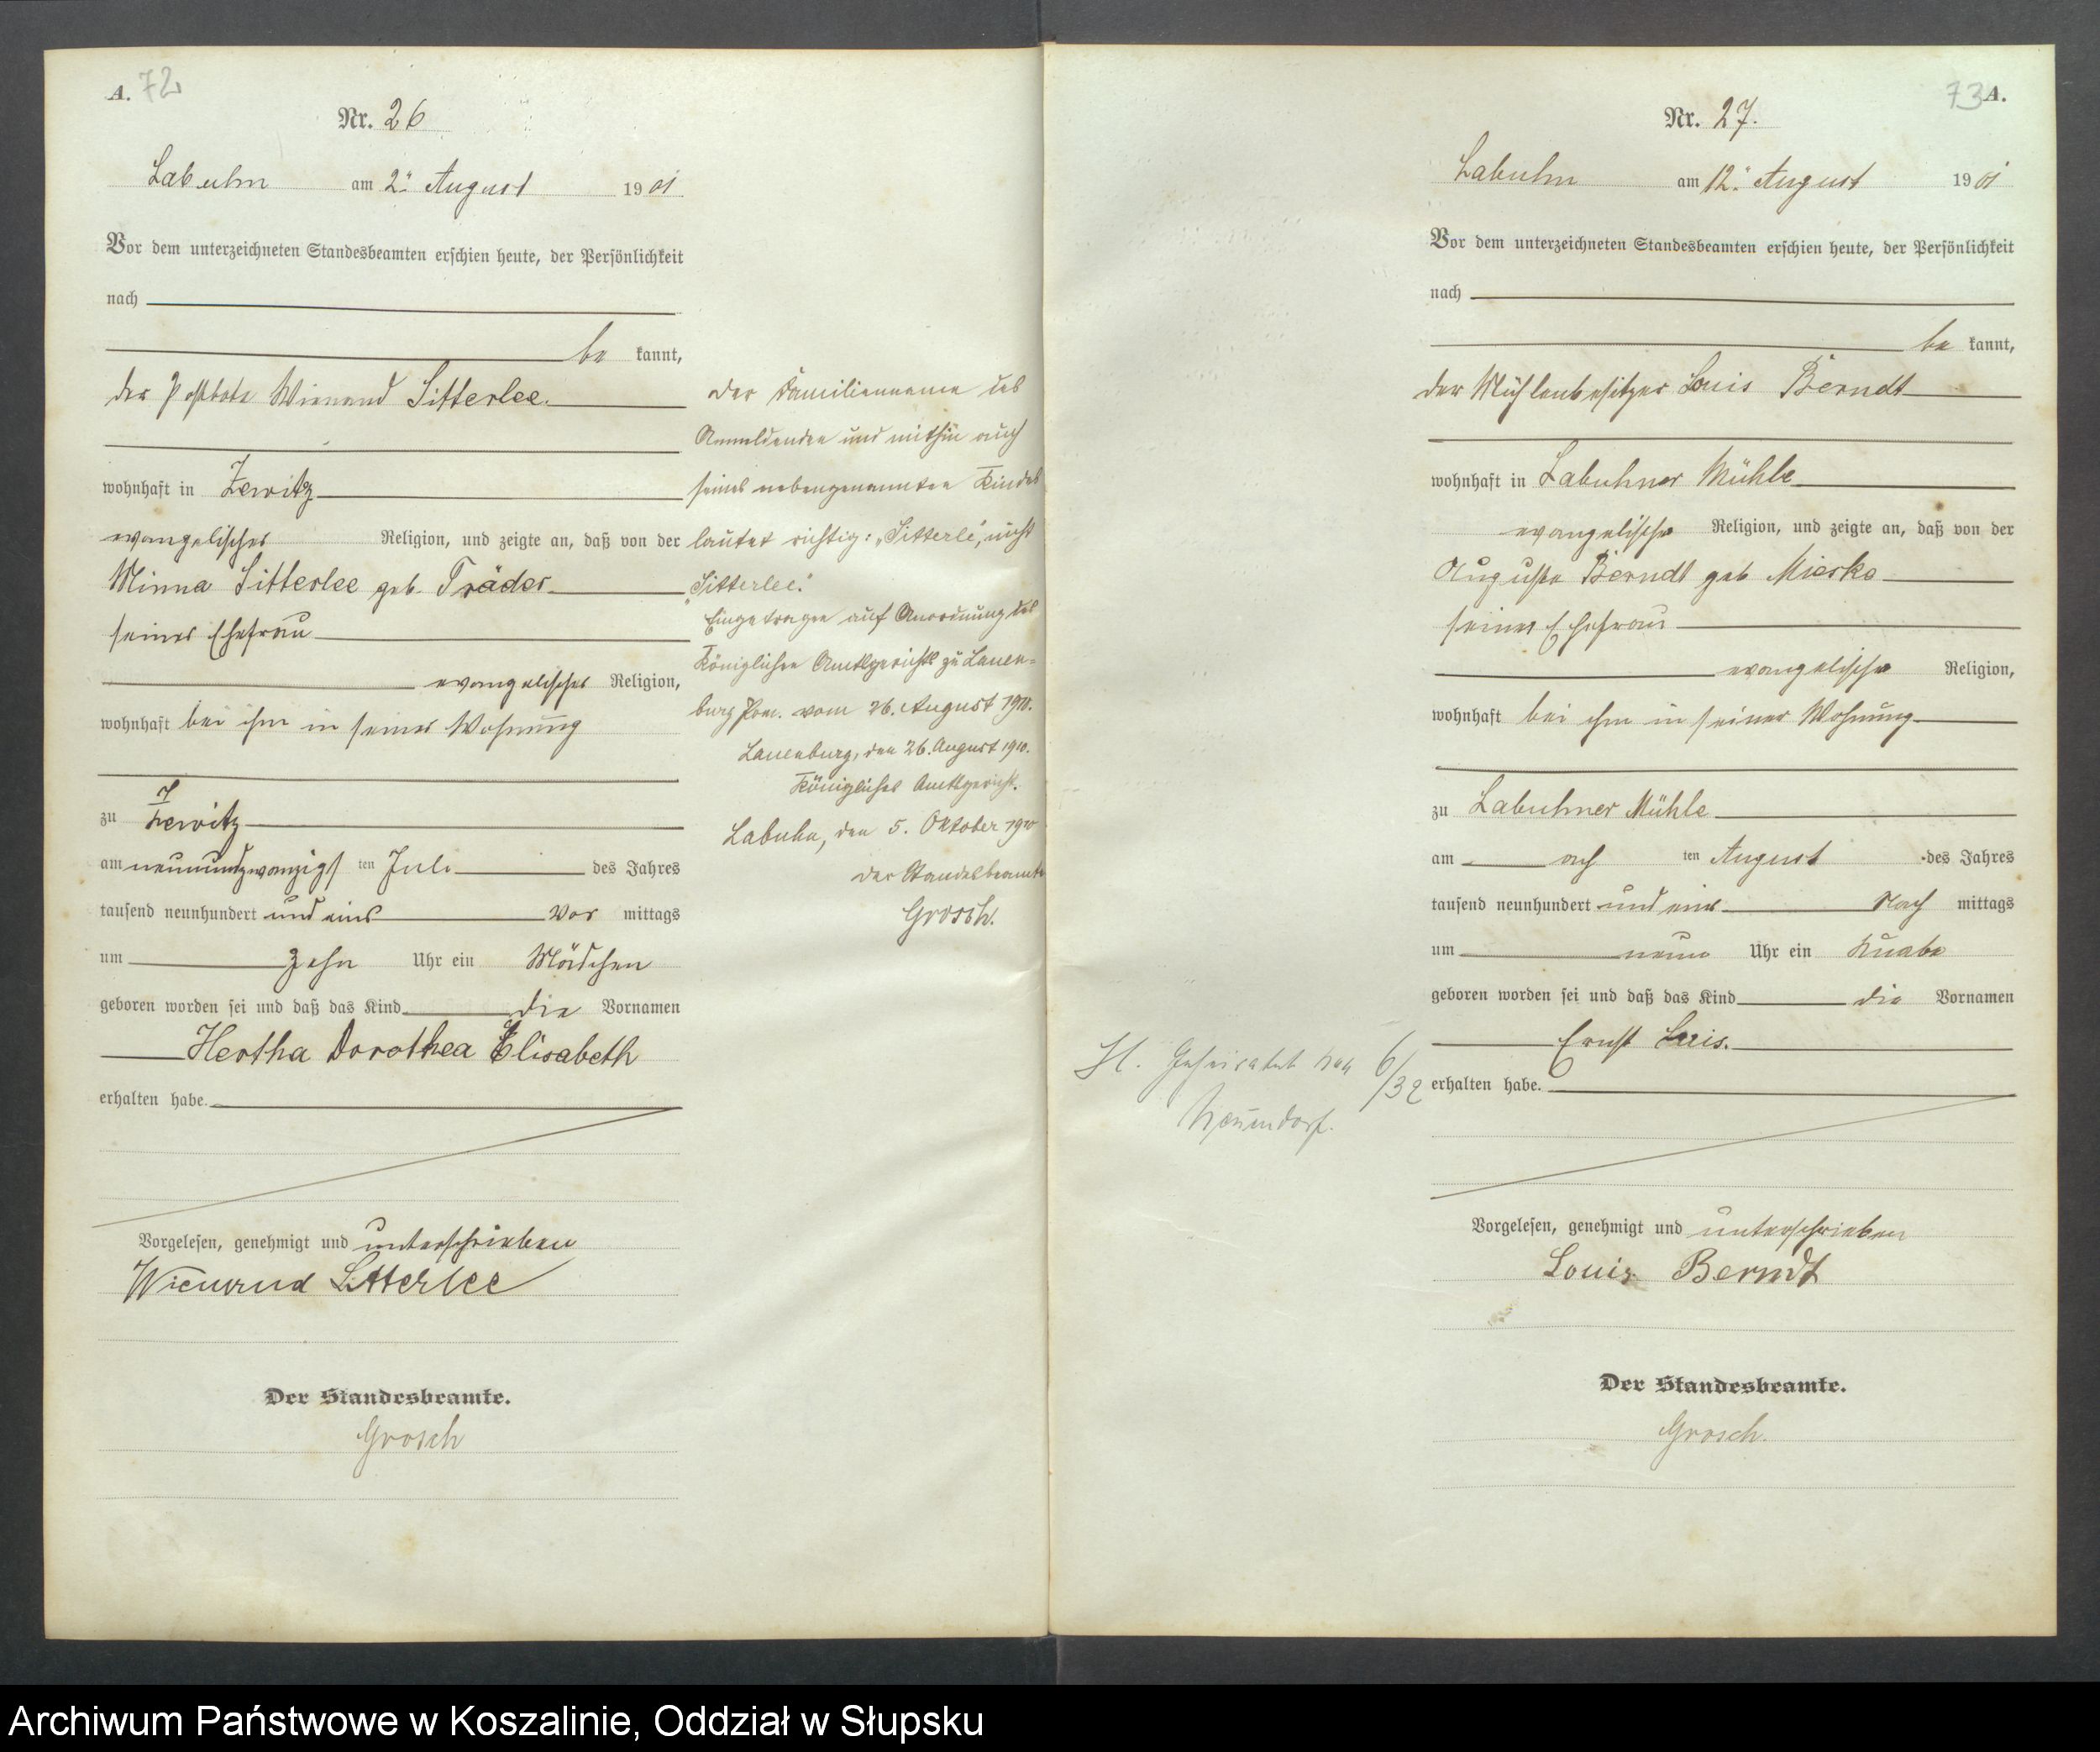 A. 72
Nr. 26
Labuhn am 2ⁿ August 1901
Vor dem unterzeichneten Standesbeamten erschien heute, der Persönlichkeit
nach
be kannt,
der Postbote Wienand Litterlee.
wohnhaft in Zewitz
evangelischer Religion, und zeigte an, daß von der
Minna Litterlee geb. Träder
seiner Ehefrau
evangelischer Religion,
wohnhaft bei ihm in seiner Wohnung
zu Zewitz
am neunundzwanzigsten Juli des Jahres
tausend neunhundert und eins Vor mittags
um zehn Uhr ein Mädchen
geboren worden sei und daß das Kind die Vornamen
Hertha Dorothea Elisabeth
erhalten habe.
Vorgelesen, genehmigt und unterschrieben
Wienand Litterlee
Der Standesbeamte.
Grosch
Der Familienname des
Anmeldenden und mithin auch
seines nebengenannten Kindes
lautet richtig: „Litterle", nicht
„Litterlee".
Eingetragen auf Anordnung des
Königlichen Amtsgerichts zu Lauen-
burg Pom. vom 26. August 1910.
Lauenburg, den 26. August 1910.
Königliches Amtsgericht.
Labuhn, den 5. Oktober 1910
Der Standesbeamte
Grosch.
73 A.
Nr. 27.
Labuhn am 12ⁿ August 1901
Vor dem unterzeichneten Standesbeamten erschien heute, der Persönlichkeit
nach
be kannt,
der Mühlenbesitzer Louis Berndt
wohnhaft in Labuhner Mühle
evangelischer Religion, und zeigte an, daß von der
Auguste Berndt geb. Mieske
seiner Ehefrau
evangelischer Religion,
wohnhaft bei ihm in seiner Wohnung
zu Labuhner Mühle
am achten August des Jahres
tausend neunhundert und eins Nach mittags
um neun Uhr ein Knabe
geboren worden sei und daß das Kind die Vornamen
Ernst Louis.
erhalten habe.
H. Geheiratet 6/32
Neuendorf.
Vorgelesen, genehmigt und unterschrieben
Louis Berndt
Der Standesbeamte.
Grosch.
Archiwum Państwowe w Koszalinie, Oddział w Słupsku